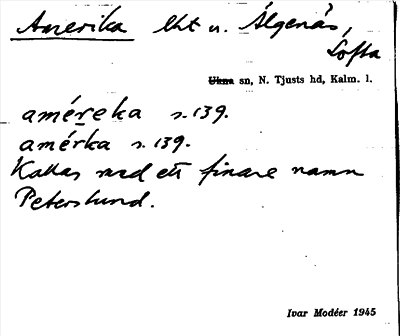 Amerika lht u. Älgenäs,
Lofta
Ukna sn, N. Tjusts hd, Kalm. l.
améreka s. 139.
amérka s. 139.
Kallas med ett finare namn
Peterslund.
Ivar Modéer 1945